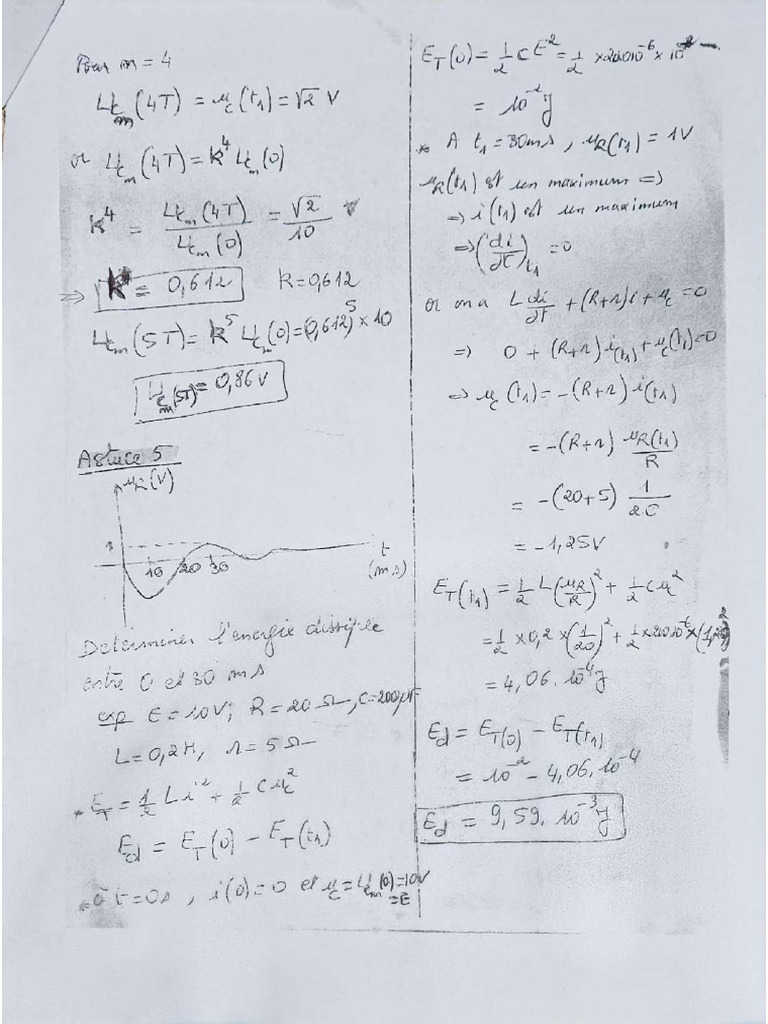 Pour m = 4
Ucm(4T) = uc(t1) = √2 V
or Ucm(4T) = k⁴ Ucm(0)
k⁴ = Ucm(4T) / Ucm(0) = √2 / 10
=> k = 0,612 k = 0,612
Ucm(5T) = k⁵ Ucm(0) = (0,612)⁵ × 10
Ucm(5T) = 0,86 V
Astuce 5
uR(V)
1
10 20 30
t (ms)
Déterminer l'energie dissipée
entre 0 et 30 ms
exp E = 10V; R = 20 Ω, C = 200 µF
L = 0,2H, r = 5 Ω
* ET = 1/2 L i² + 1/2 C uc²
Ed = ET(0) - ET(t1)
* à t = 0s, i(0) = 0 et uc = Ucm(0) = 10V
= E
ET(0) = 1/2 C E² = 1/2 × 200 10⁻⁶ × 10²
= 10⁻² J
* A t1 = 30ms, uR(t1) = 1V
uR(t1) est un maximum =>
=> i(t1) est un maximum
=> (di/dt)t1 = 0
or on a L di/dt + (R+r) i + uc = 0
=> 0 + (R+r) i(t1) + uc(t1) = 0
=> uc(t1) = -(R+r) i(t1)
= -(R+r) uR(t1) / R
= -(20+5) 1/20
= -1,25V
ET(t1) = 1/2 L (uR/R)² + 1/2 C uc²
= 1/2 × 0,2 × (1/20)² + 1/2 × 200 10⁻⁶ × (1,25)²
= 4,06. 10⁻⁴ J
Ed = ET(0) - ET(t1)
= 10⁻² - 4,06. 10⁻⁴
Ed = 9,59. 10⁻³ J